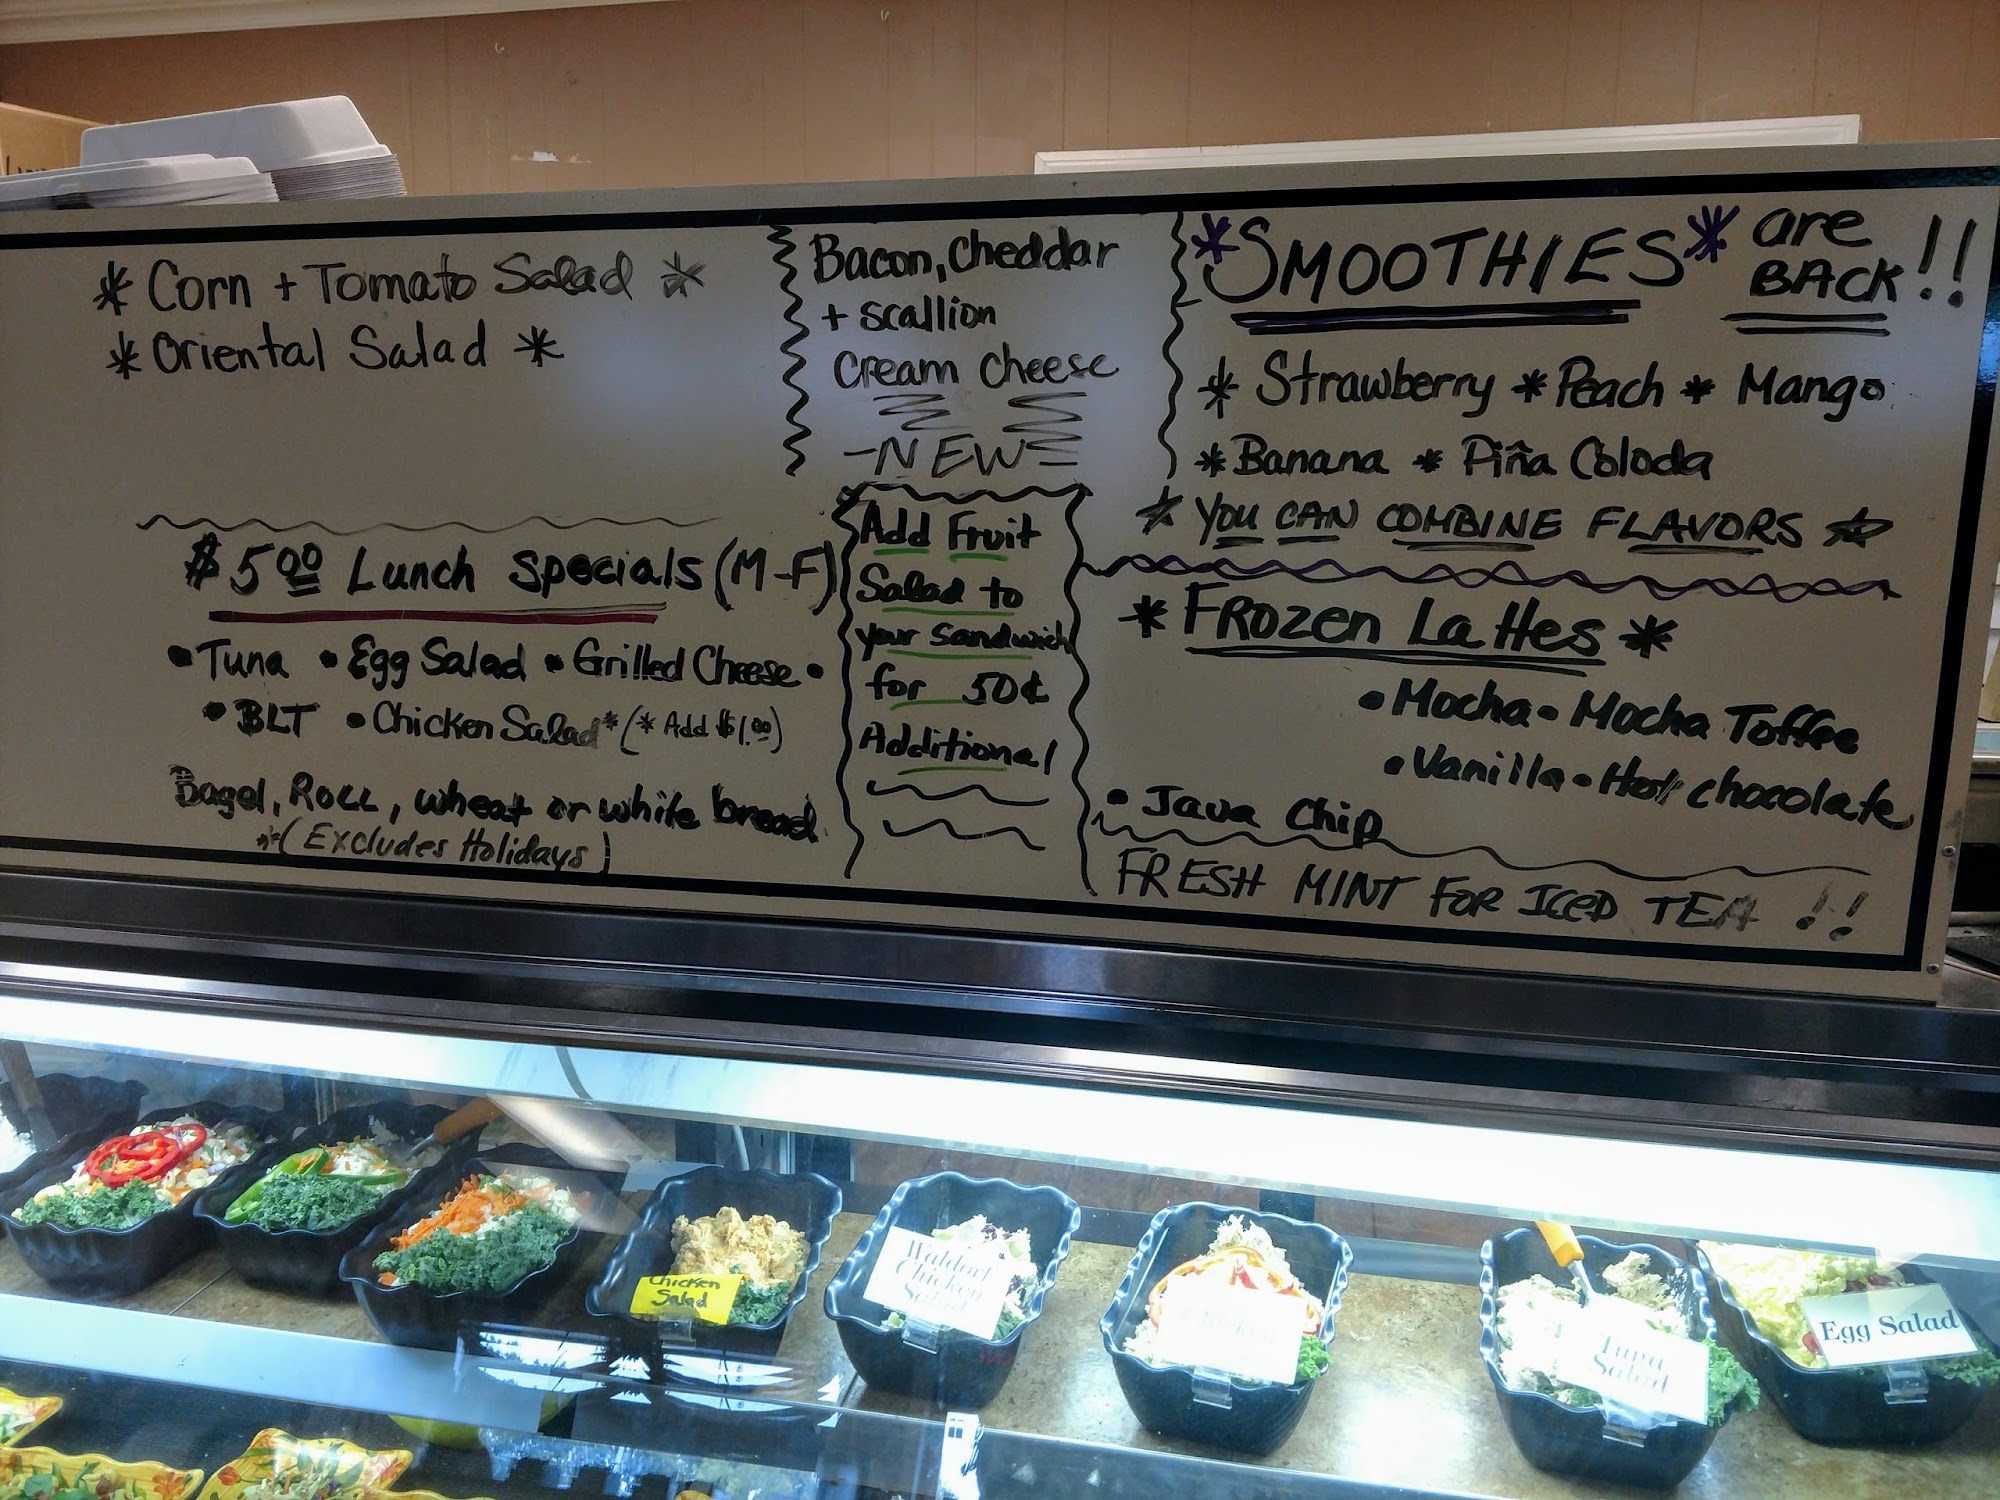 * Corn + Tomato Salad *
* Oriental Salad *
$5.00 Lunch Specials (M-F)
• Tuna • Egg Salad • Grilled Cheese •
• BLT • Chicken Salad* (* Add $1.00)
Bagel, Roll, wheat or white bread
*(Excludes Holidays)
Bacon, Cheddar
+ scallion
Cream Cheese
-NEW-
Add Fruit
Salad to
your sandwich
for 50¢
Additional
*SMOOTHIES* are
BACK!!
* Strawberry * Peach * Mango
* Banana * Piña Colada
* YOU CAN COMBINE FLAVORS *
* FROZEN LaHes *
• Mocha • Mocha Toffee
• Vanilla • Hot chocolate
• Java Chip
FRESH MINT FOR ICED TEA !!
Chicken
Salad
Waldorf
Chicken
Salad
Chicken
Tuna
Salad
Egg Salad